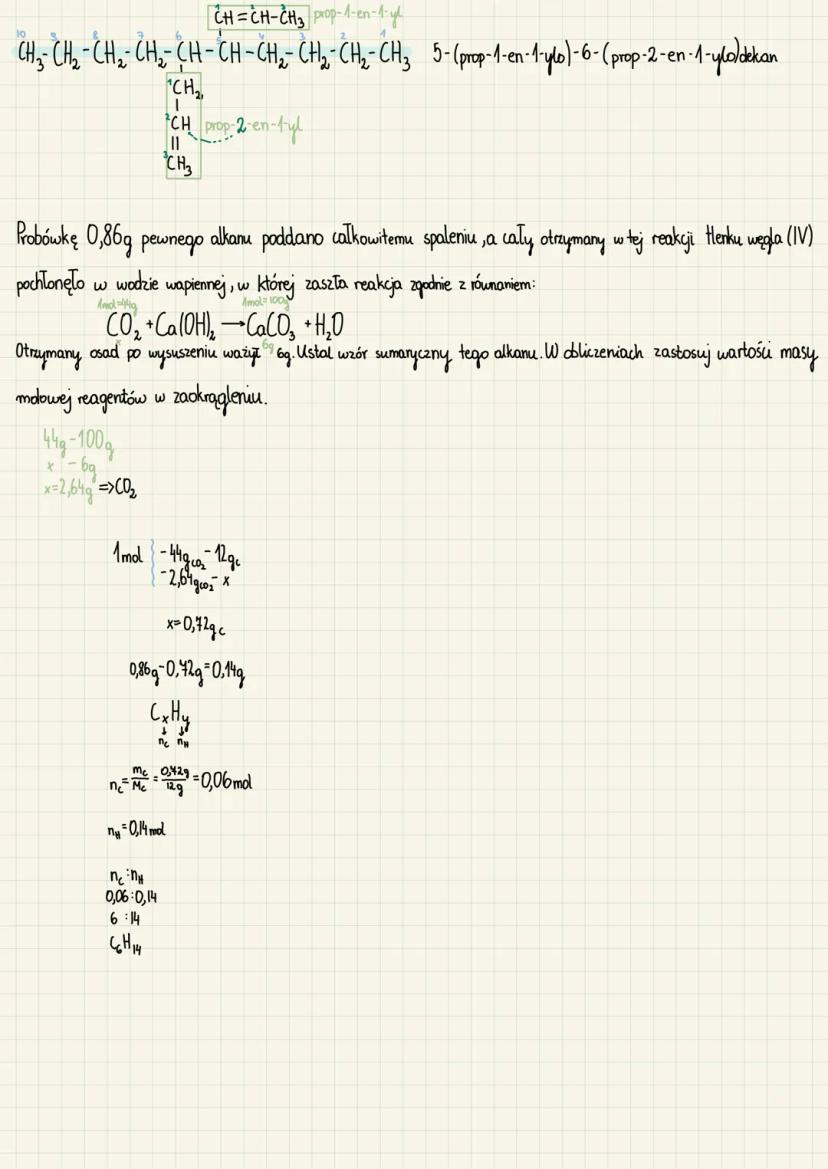 ¹CH=²CH-³CH₃ prop-1-en-1-yl
10 9 8 7 6 5 4 3 2 1
CH₃-CH₂-CH₂-CH₂-CH-CH-CH₂-CH₂-CH₂-CH₃ 5-(prop-1-en-1-ylo)-6-(prop-2-en-1-ylo)dekan
¹CH₂
²CH prop-2-en-1-yl
³CH₃
Probówkę 0,86g pewnego alkanu poddano całkowitemu spaleniu, a cały otrzymany w tej reakcji tlenku węgla (IV)
pochłonęło w wodzie wapiennej, w której zaszła reakcja zgodnie z równaniem:
1mol=44g 1mol=100g
CO₂+Ca(OH)₂→CaCO₃+H₂O
x 6g
Otrzymany osad po wysuszeniu ważył 6g. Ustal wzór sumaryczny tego alkanu. W obliczeniach zastosuj wartości masy
molowej reagentów w zaokrągleniu.
44g-100g
x - 6g
x=2,64g =>CO₂
1mol -44g CO₂ - 12g C
-2,64g CO₂ - x
x=0,72g C
0,86g-0,72g=0,14g
CₓHᵧ
↓ ↓
n꜀ n_H
n꜀=m꜀/M꜀=0,72g/12g=0,06mol
n_H=0,14mol
n꜀:n_H
0,06:0,14
6 :14
C₆H₁₄